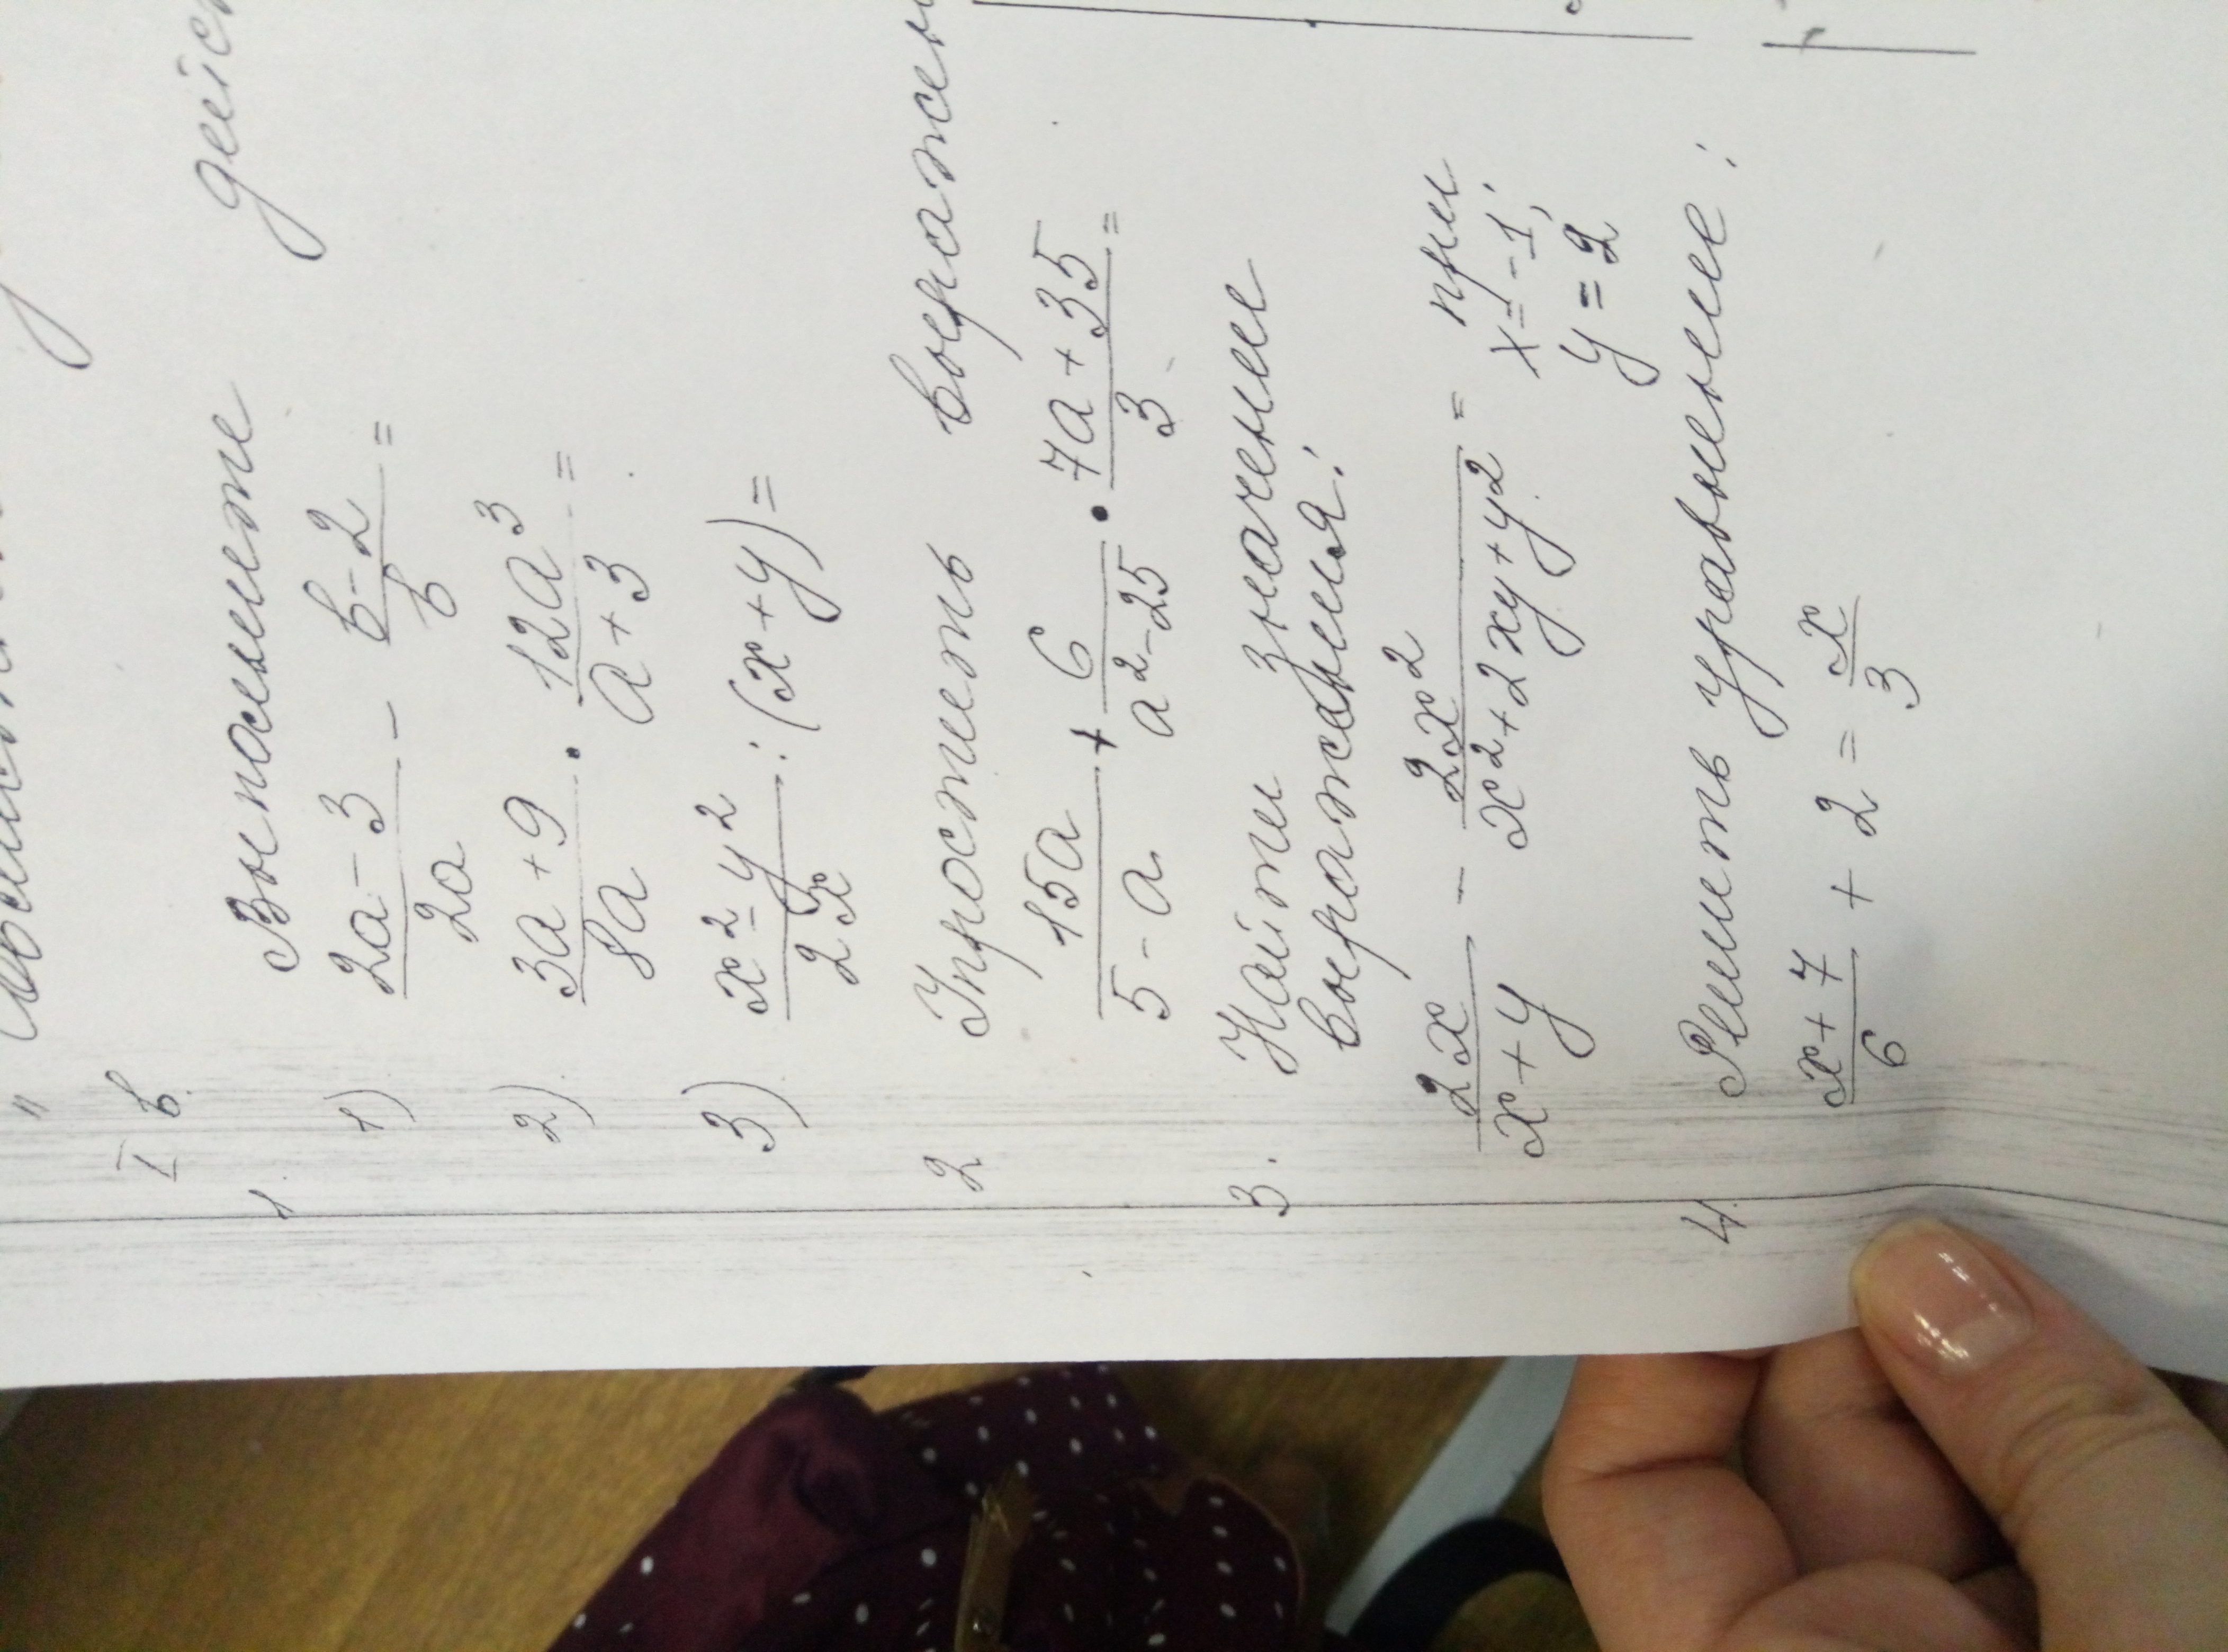 I в.
1. Выполните дейс
1) (2a - 3)/(2a) - (b - 2)/b =
2) (3a + 9)/(8a) · (12a³)/(a + 3) =
3) (x² - y²)/(2x) : (x + y) =
2 Упростить выражен
(15a)/(5 - a) + 6/(a² - 25) · (7a + 35)/3 =
3. Найти значение
выражения:
(2x)/(x + y) - (2x²)/(x² + 2xy + y²) = при
x = -1;
y = 2
4. Решить уравнение:
(x + 7)/6 + 2 = x/3